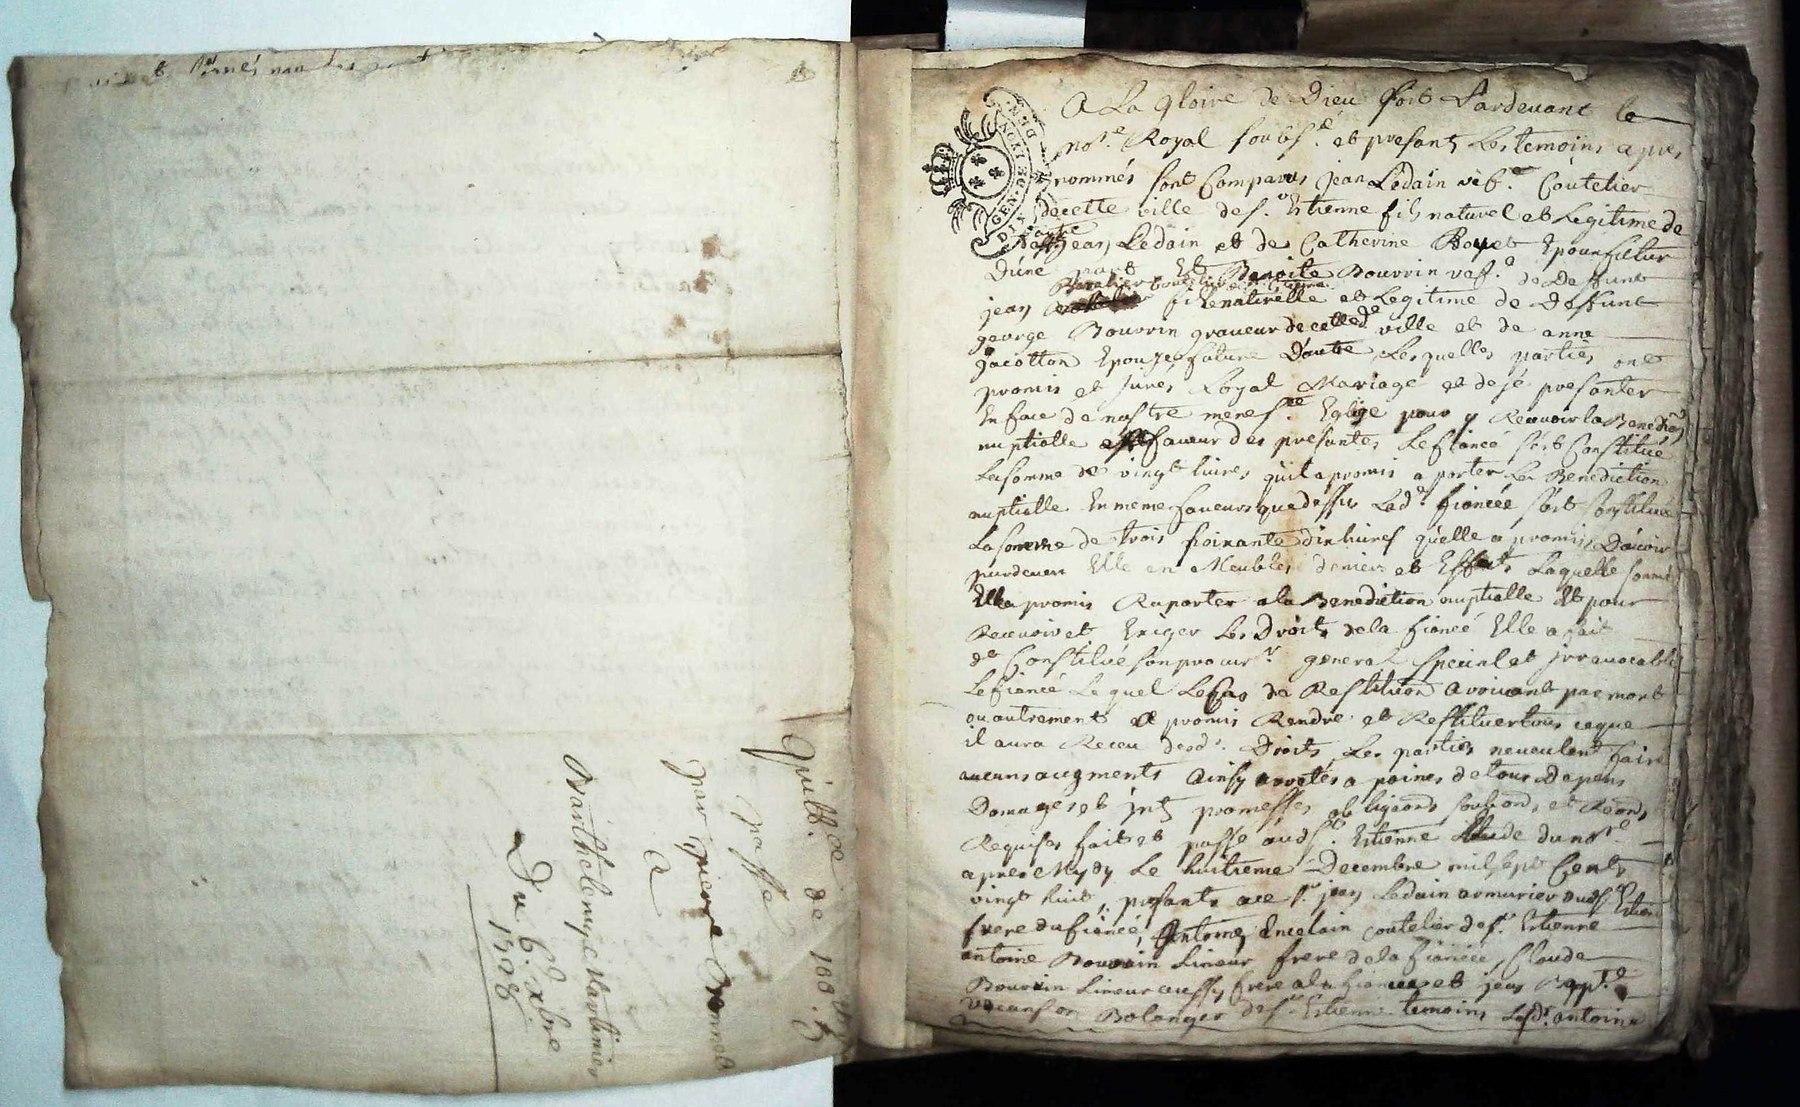 nommés
Quitt.ce de 100 #
passé
par pierre Bonnet
A
Barthelemy Marlinier
Du 6e Xbre
1728
GEN · DU · LYON
A La gloire de Dieu soit Pardevant le
no.re Royal soubs.né et presants Les temoins apres
nommés sont Comparus jean Ledain veb.e Coutelier
de cette ville de s.t Etienne fils naturel et Legitime de
jean Ledain et de Catherine Boyet Epoux futur
Dúne part Et Benoite Bouvrin vef.e de Deffunt
Coutelier
jean fille naturelle et Legitime de Deffunt
george Bouvrin graveur de cette de ville et de anne
jacotton Epouze future D'autre Lesquelles parties ont
promis et jurés Loyal Mariage et de sé presanter
En face de nostre mere s.te Eglize pour y Recevoir la Benedi.on
nuptialle faveur des presantes Le fiancé s'est Constitué
La somme de vingt livres qu'il a promis a porter La Benediction
nuptialle En meme faveurs que dessus Lad.e fiancée s'est Constitué
La somme de trois soixante dix livres qu'elle a promis D'avoir
pardevers Elle en Meubles deniers et Effects Laquelle somme
Elle a promis Raporter a la Benediction nuptialle Et pour
Recevoir et Exiger Les Droits de la fiancé Elle a fait
et Constitué son procur.r general special et jrrevocable
Le fiancé Lequel Le Cas de Restitu.on avenant par mort
ou autrement a promis Rendre et Restituer tous ce que
il aura Receu desd.s Droits, Les parties ne veulent faire
aucuns augments Ainsy a peines de tous Depens
Domages et jnts promesses obligeons soubons et Reons
Requises fait et passé aud s.t Etienne Etude du no.re
apres Mydy Le huitieme Decembre mil sept Cents
vingt huit, presants ace s.r jean Ledain armurier aud s.t Etien
frere du fiancé, Antoine Encelain coutelier de s.t Etienne
antoine Bouvrin Limeur frere de la fiancée, Claude
Bouvrin Limeur aussy frere a la fiancée et jean
Bolanger de s.t Etienne temoins Lesd.s antoine